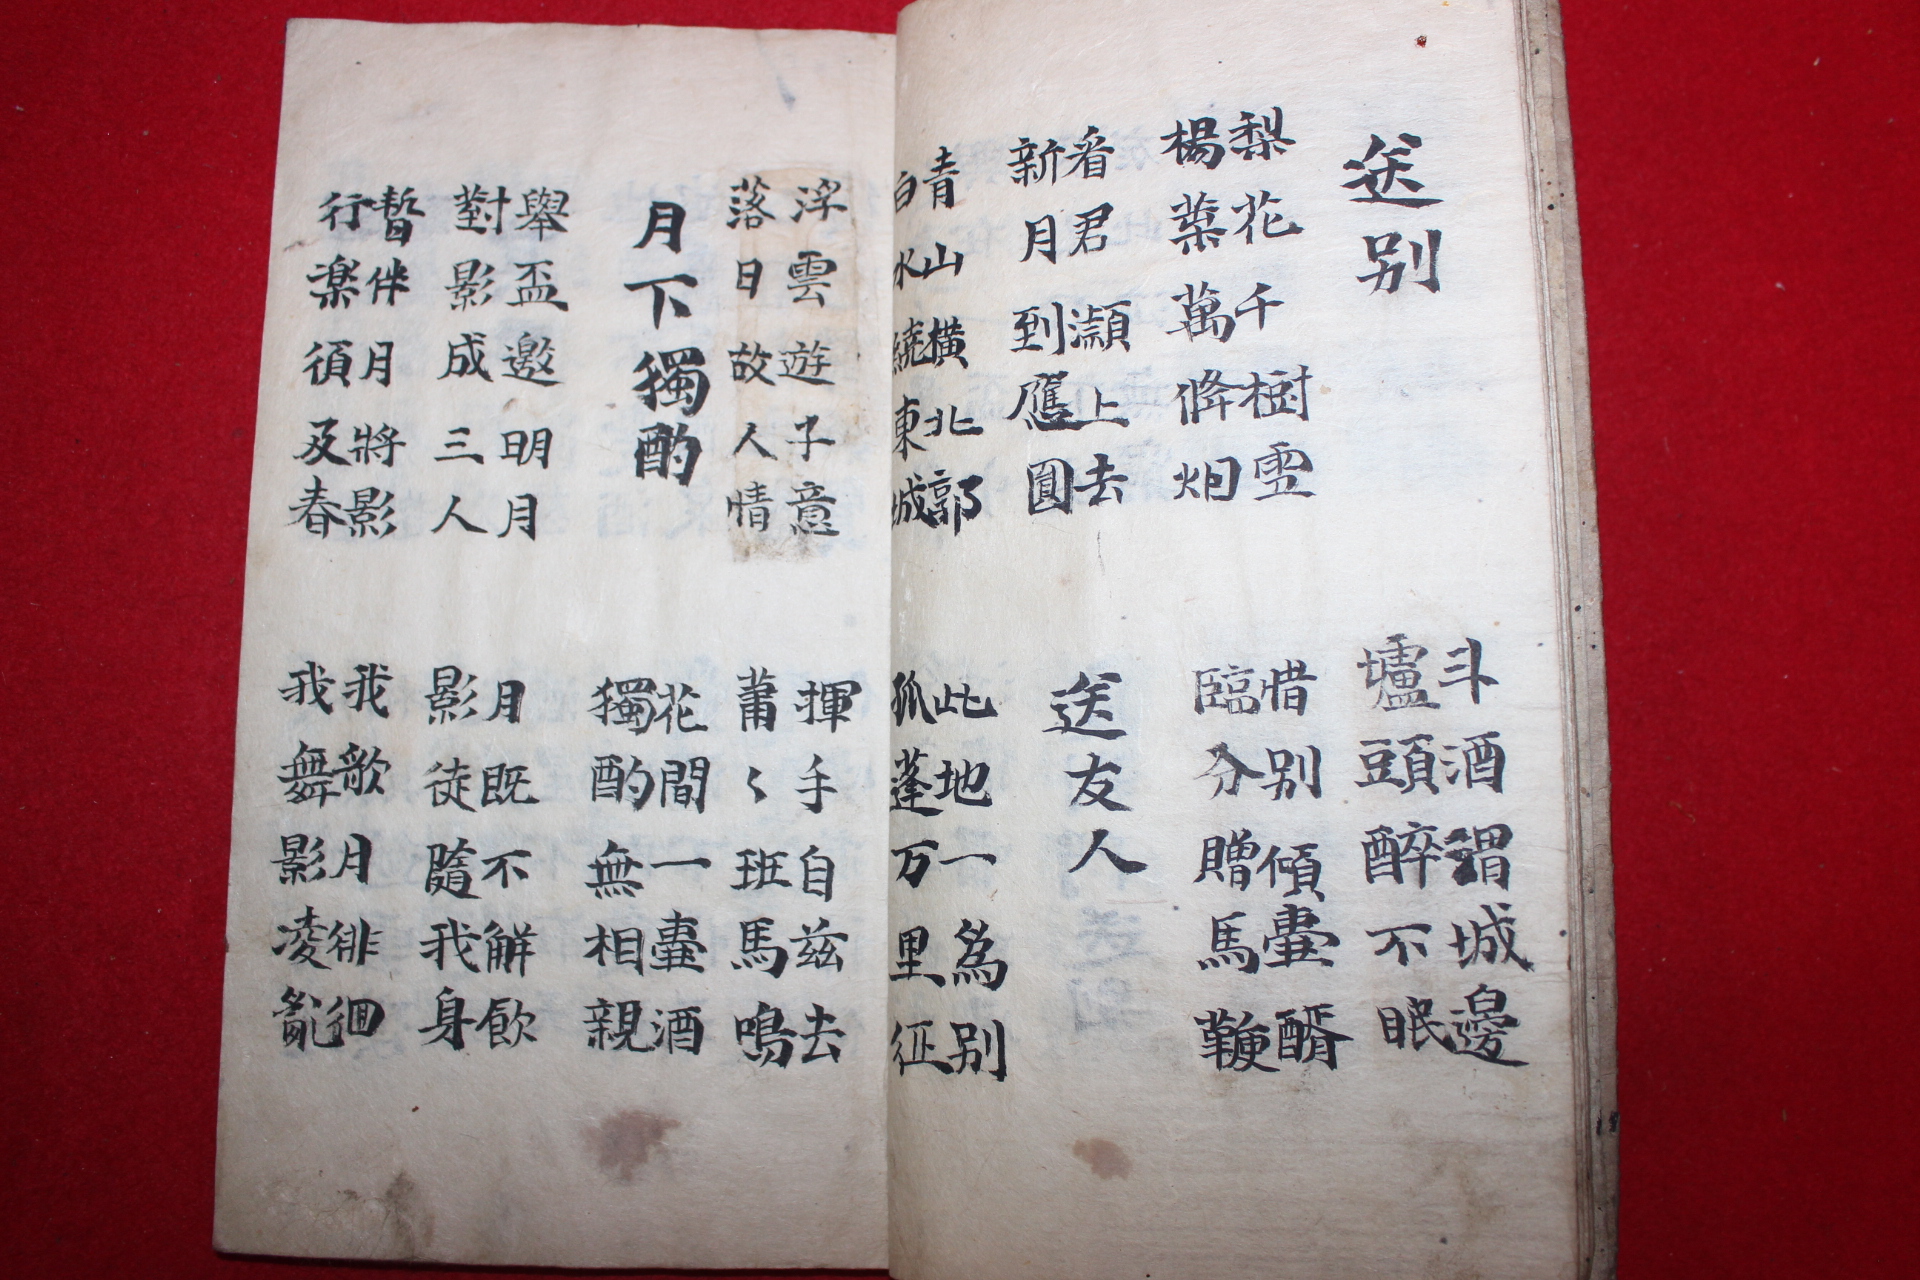 送別
斗酒渭城邊
壚頭醉不眠
梨花千樹雪
楊葉萬條烟
惜別傾壺醑
臨分贈馬鞭
看君潁上去
新月到應圓
送友人
青山橫北郭
白水繞東城
此地一為別
孤蓬万里征
浮雲遊子意
落日故人情
揮手自茲去
蕭〻班馬鳴
月下獨酌
花間一壺酒
獨酌無相親
舉盃邀明月
對影成三人
月既不解飲
影徒隨我身
暫伴月將影
行楽須及春
我歌月徘徊
我舞影凌亂